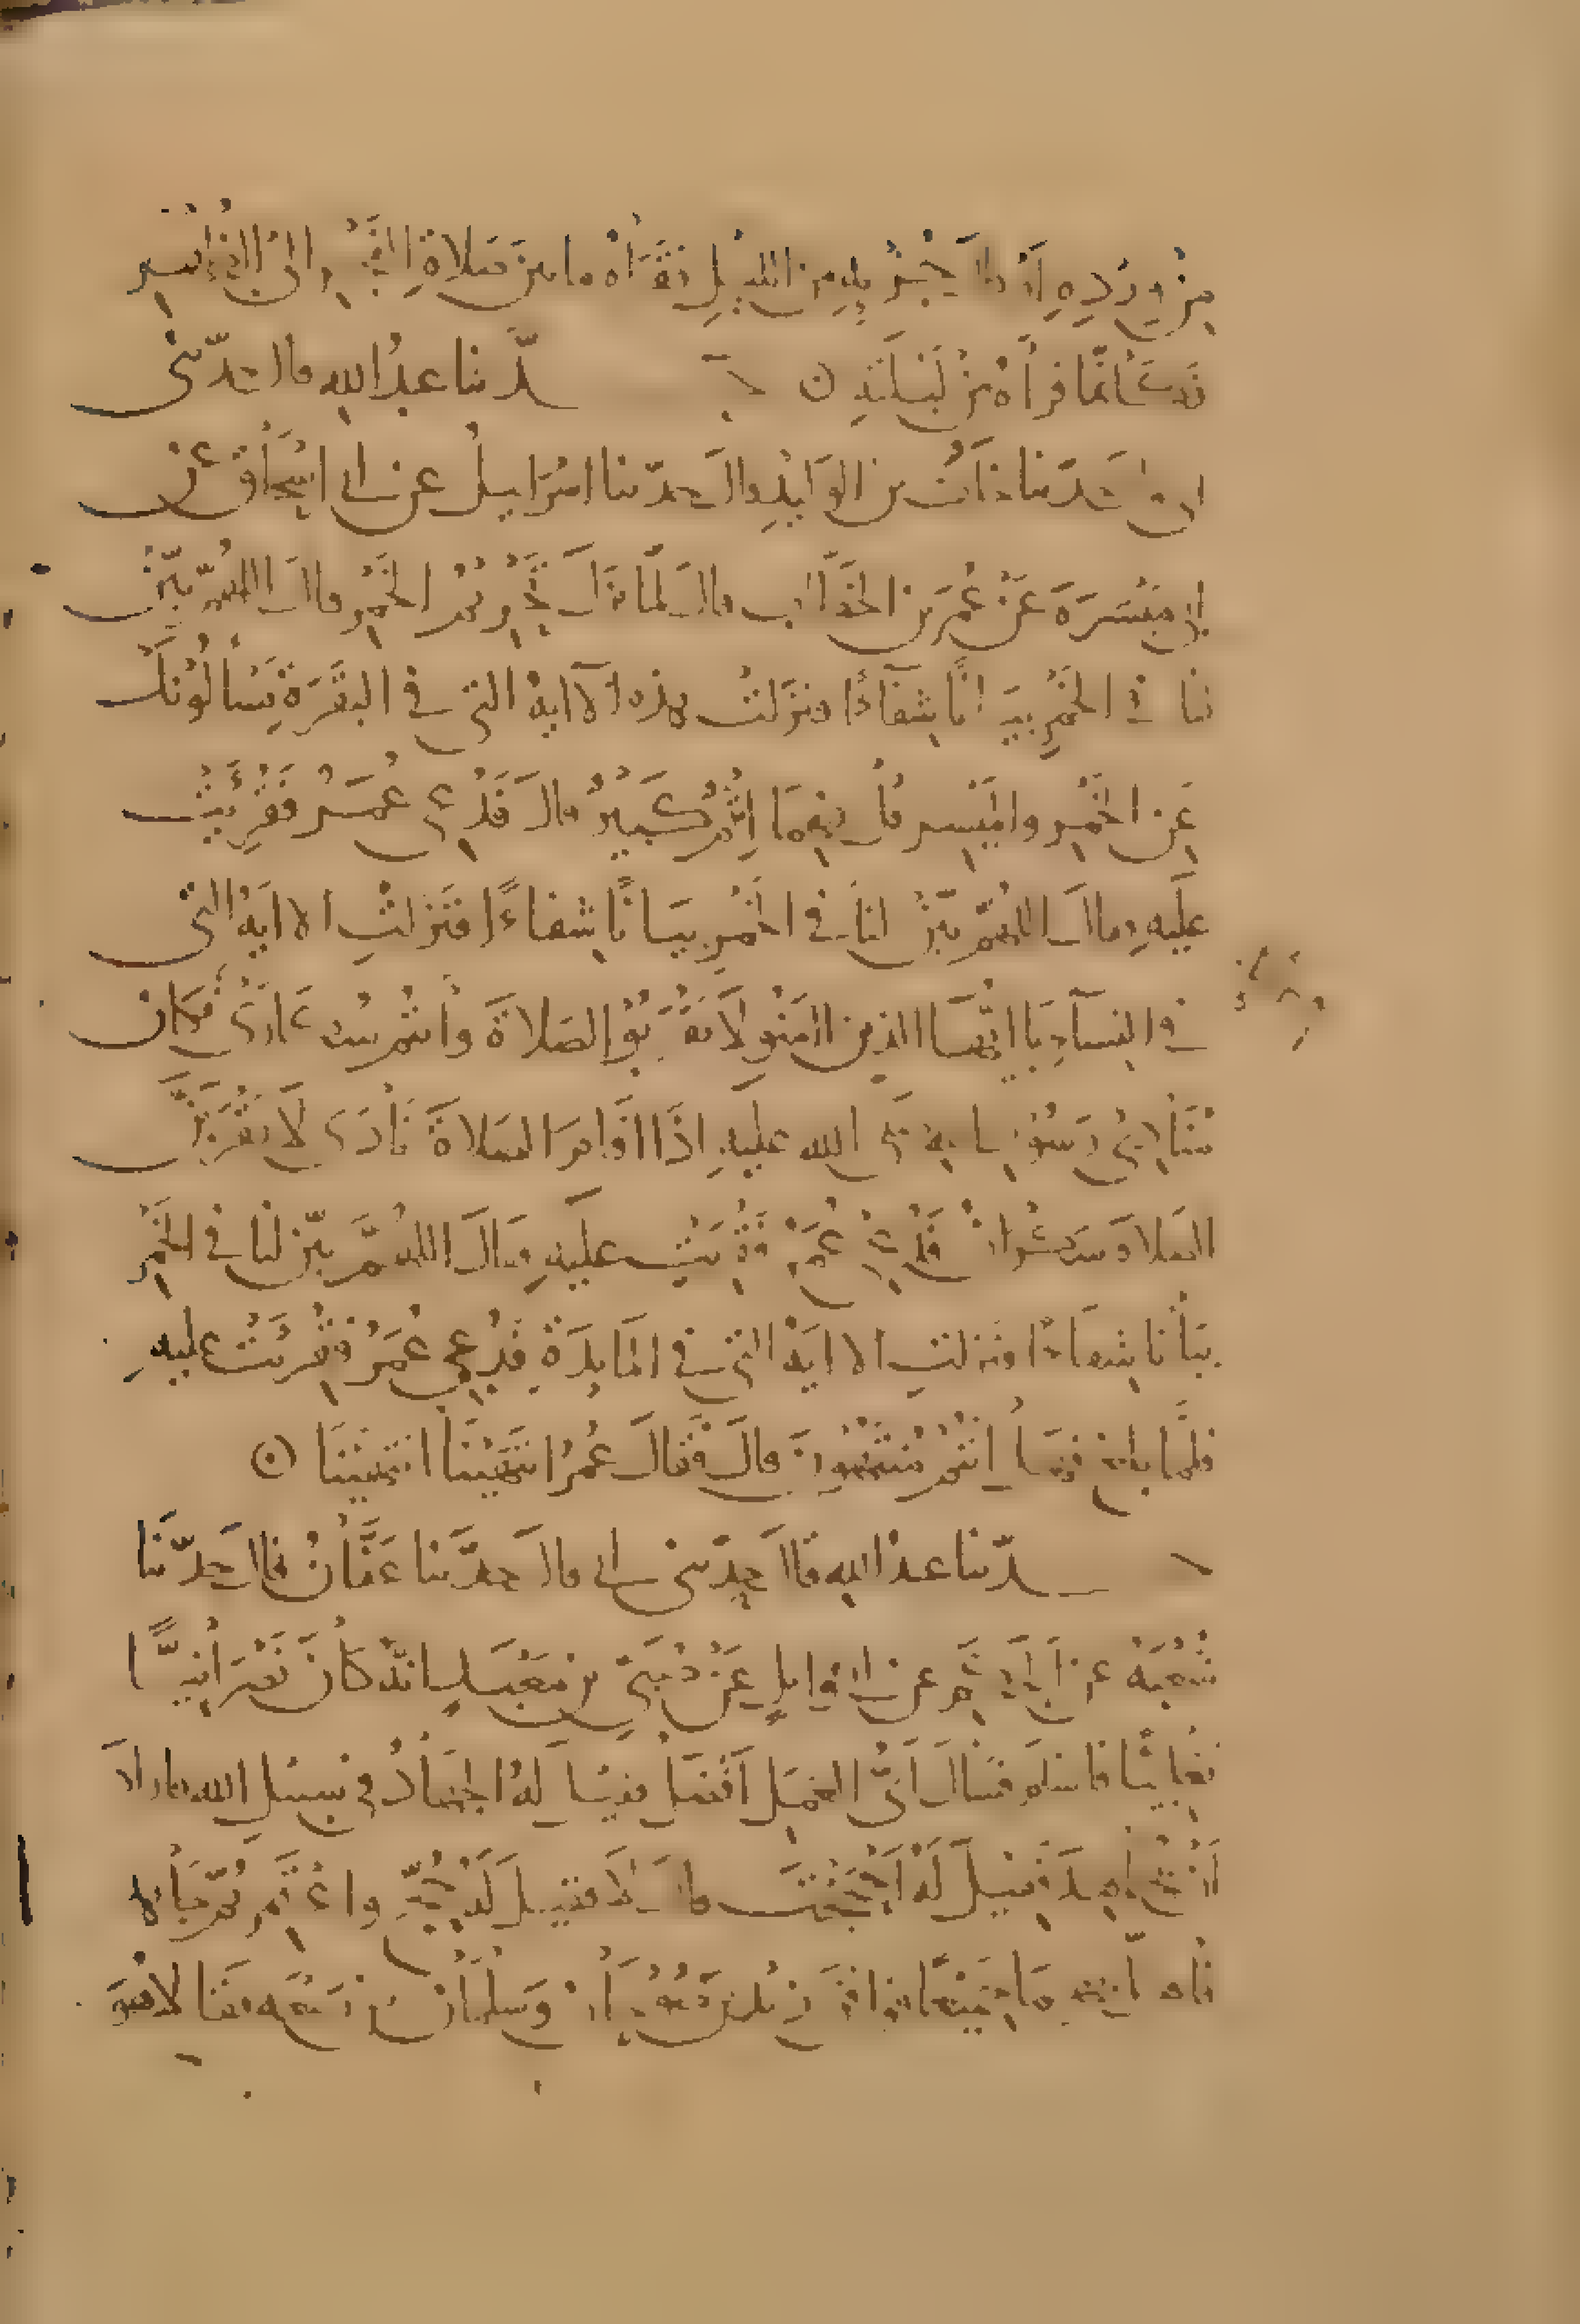 من ورده او قال من جزئه من الليل فقرأه ما بين صلاة الفجر الى الظهر
فكأنما قرأه من ليلته ن حدّثنا عبد الله قال حدّثني
ابي حدّثنا خلف بن الوليد قال حدّثنا اسرايل عن ابي اسحاق عن
ابي ميسرة عن عمر بن الخطاب قال لمّا نزل تحريم الخمر قال اللهم بيّن
لنا في الخمر بيانا شفاءً فنزلت هذه الاآية التي في البقرة يسألونك
عن الخمر والميسر قل فيهما اثم كبير قال فدعي عمر فقريت
عليه فقال اللهم بيّن لنا في الخمر بيانًا شفاءً فنزلت الااية التي
في النسآء ياايّها الذين اامنو لا تقربوا الصلاة وأنتم سكارى فكان
منادي رسول الله صلى الله عليه اذا اقام الصلاة نادى لا يقربنّ
الصلاة سكران فدعي عمر فقريت عليه فقال اللهمّ بيّن لنا في الخمر
بيانا شفاءً فنزلت الااية التي في المايدة فدعي عمر فقريت عليه
فلما بلغ فهل انتم منتهون قال فقال عمر انتهينا انتهينا ن
حدّثنا عبد الله قال حدّثني ابي قال حدّثنا عفّان قال حدّثنا
شعبة عن الحكم عن ابي وايل عن صبيّ بن معبد انه كان نصرانيّا
تغلبيّا فاسلم فسأل ايّ العمل افضل فقيل له الجهاد في سبيل الله فاراد
ان يجاهد فقيل له احججت قال لا فقيل له حجّ واعتمر ثمّ جاهد
فاهلّ بهما جميعًا فوافق زيد بن صوحان وسلمان بن ربيعة فقالا هو